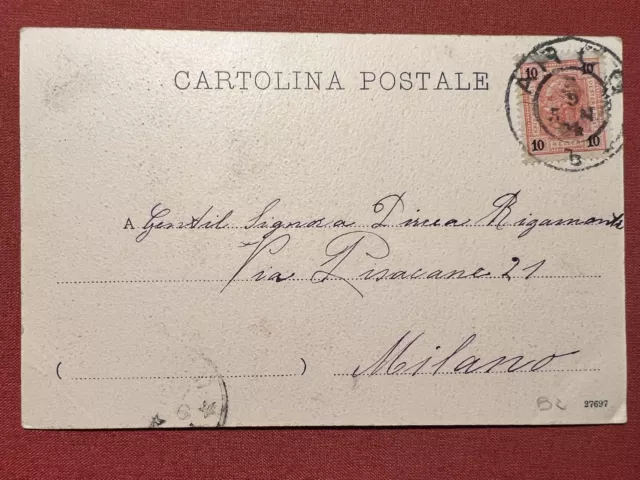 CARTOLINA POSTALE
10 10
10 10
ARCO
A Gentil Signora Dirce Rigamonti
Via Pisacane 21
( ) Milano
BZ 27697